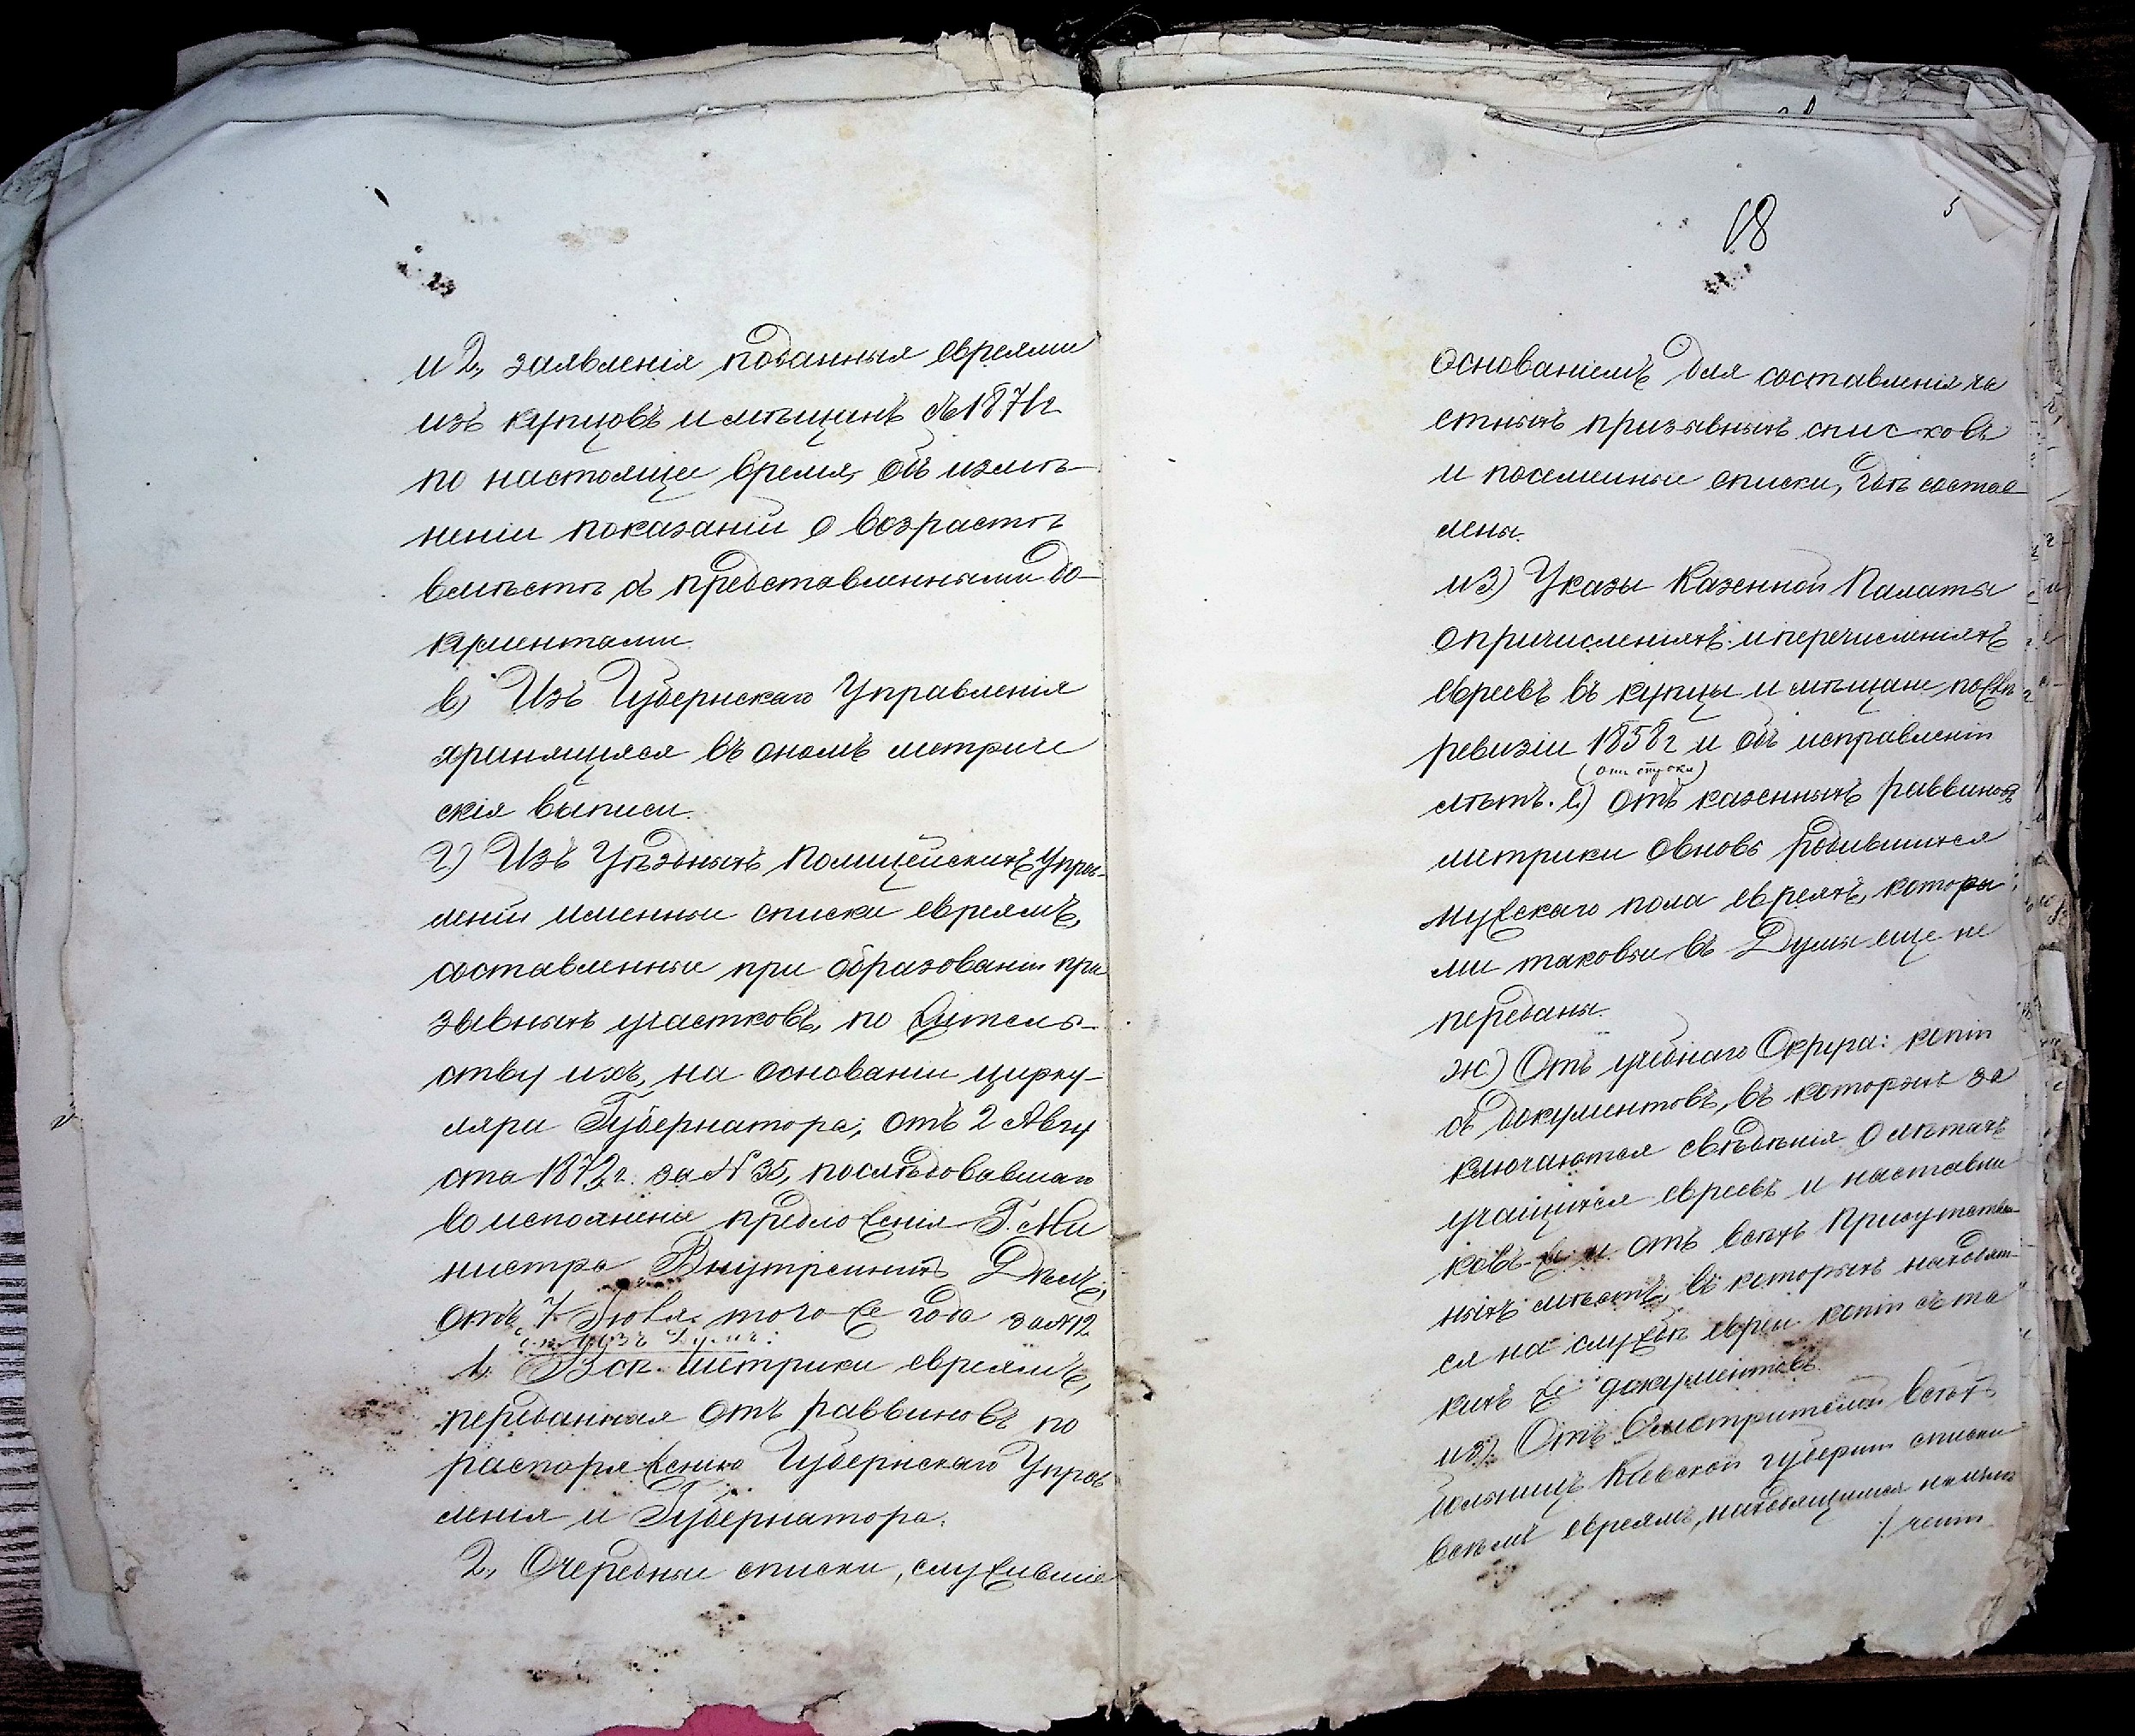 и 2, заявленія поданныя евреями
изъ купцовъ и мѣщанъ съ 1874 г
по настоящее время, объ измѣ-
неніи показаній о возрастѣ
вмѣстѣ съ представленными до-
кументами.
в) Изъ Губернскаго Управленія
хранящіяся въ ономъ метриче
скія выписи.
г.) Изъ Уѣздныхъ Полицейскихъ Управ-
леній именные списки евреямъ,
составленные при образованіи при
зывныхъ участковъ, по житель-
ству ихъ, на основаніи цирку-
ляра Губернатора, отъ 2 Авгу
ста 1872 г. за № 35, послѣдовавшаго
во исполненіе предложенія Г. Ми
нистра Внутреннихъ Дѣлъ,
отъ 7 Іюля того же года за №12
Думъ:
1. Всѣ метрики евреямъ,
переданныя отъ раввиновъ по
распоряженію Губернскаго Управ
ленія и Губернатора.
2, Очередные списки, служившіе
18
5
основаніемъ для составленія ча
стныхъ призывныхъ списковъ
и посемейные списки, гдѣ состав
лены.
и 3) Указы Казенной Палаты
о причисленіяхъ и перечисленіяхъ
евреевъ въ купцы и мѣщане послѣ
ревизіи 1858 г и объ исправленіи
лѣтъ. е.) Отъ казенныхъ раввиновъ
метрики о вновь родившихся
мужскаго пола евреяхъ, которы
ми таковыя въ Думы еще не
переданы.
ж) Отъ учебнаго Округа: копіи
съ документовъ, въ которыхъ за
ключаются свѣдѣнія о лѣтахъ
учащихся евреевъ и наставни
ковъ и отъ всѣхъ Присутствен
ныхъ мѣстъ, въ которыхъ находят-
ся на службѣ евреи копіи съ та
кихъ же документовъ.
из). Отъ Смотрителей всѣхъ
больницъ Кіевской губерніи списки
всѣмъ евреямъ, находящимся на излѣ
/ченіи